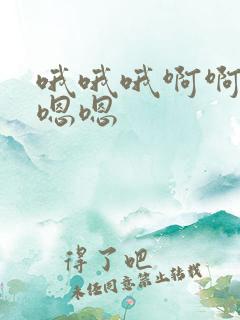 哦哦哦啊啊
嗯嗯
得了吧
未经同意禁止转载